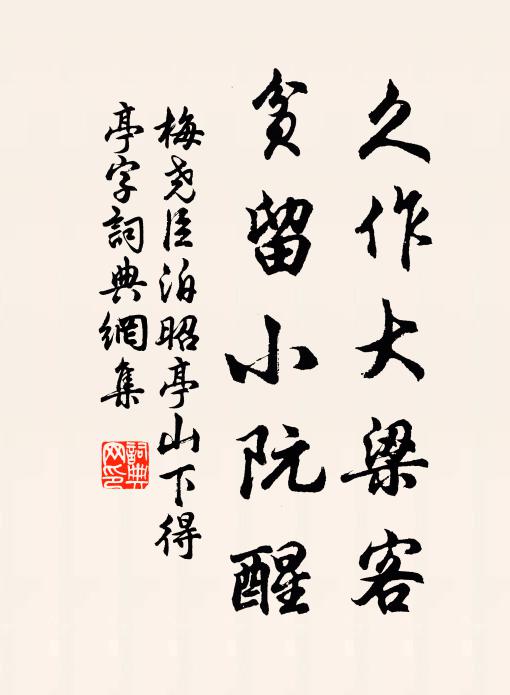 久作大梁客
貧留小阮醒
梅堯臣泊昭亭山下得
亭字詞典網集
詞典
网印